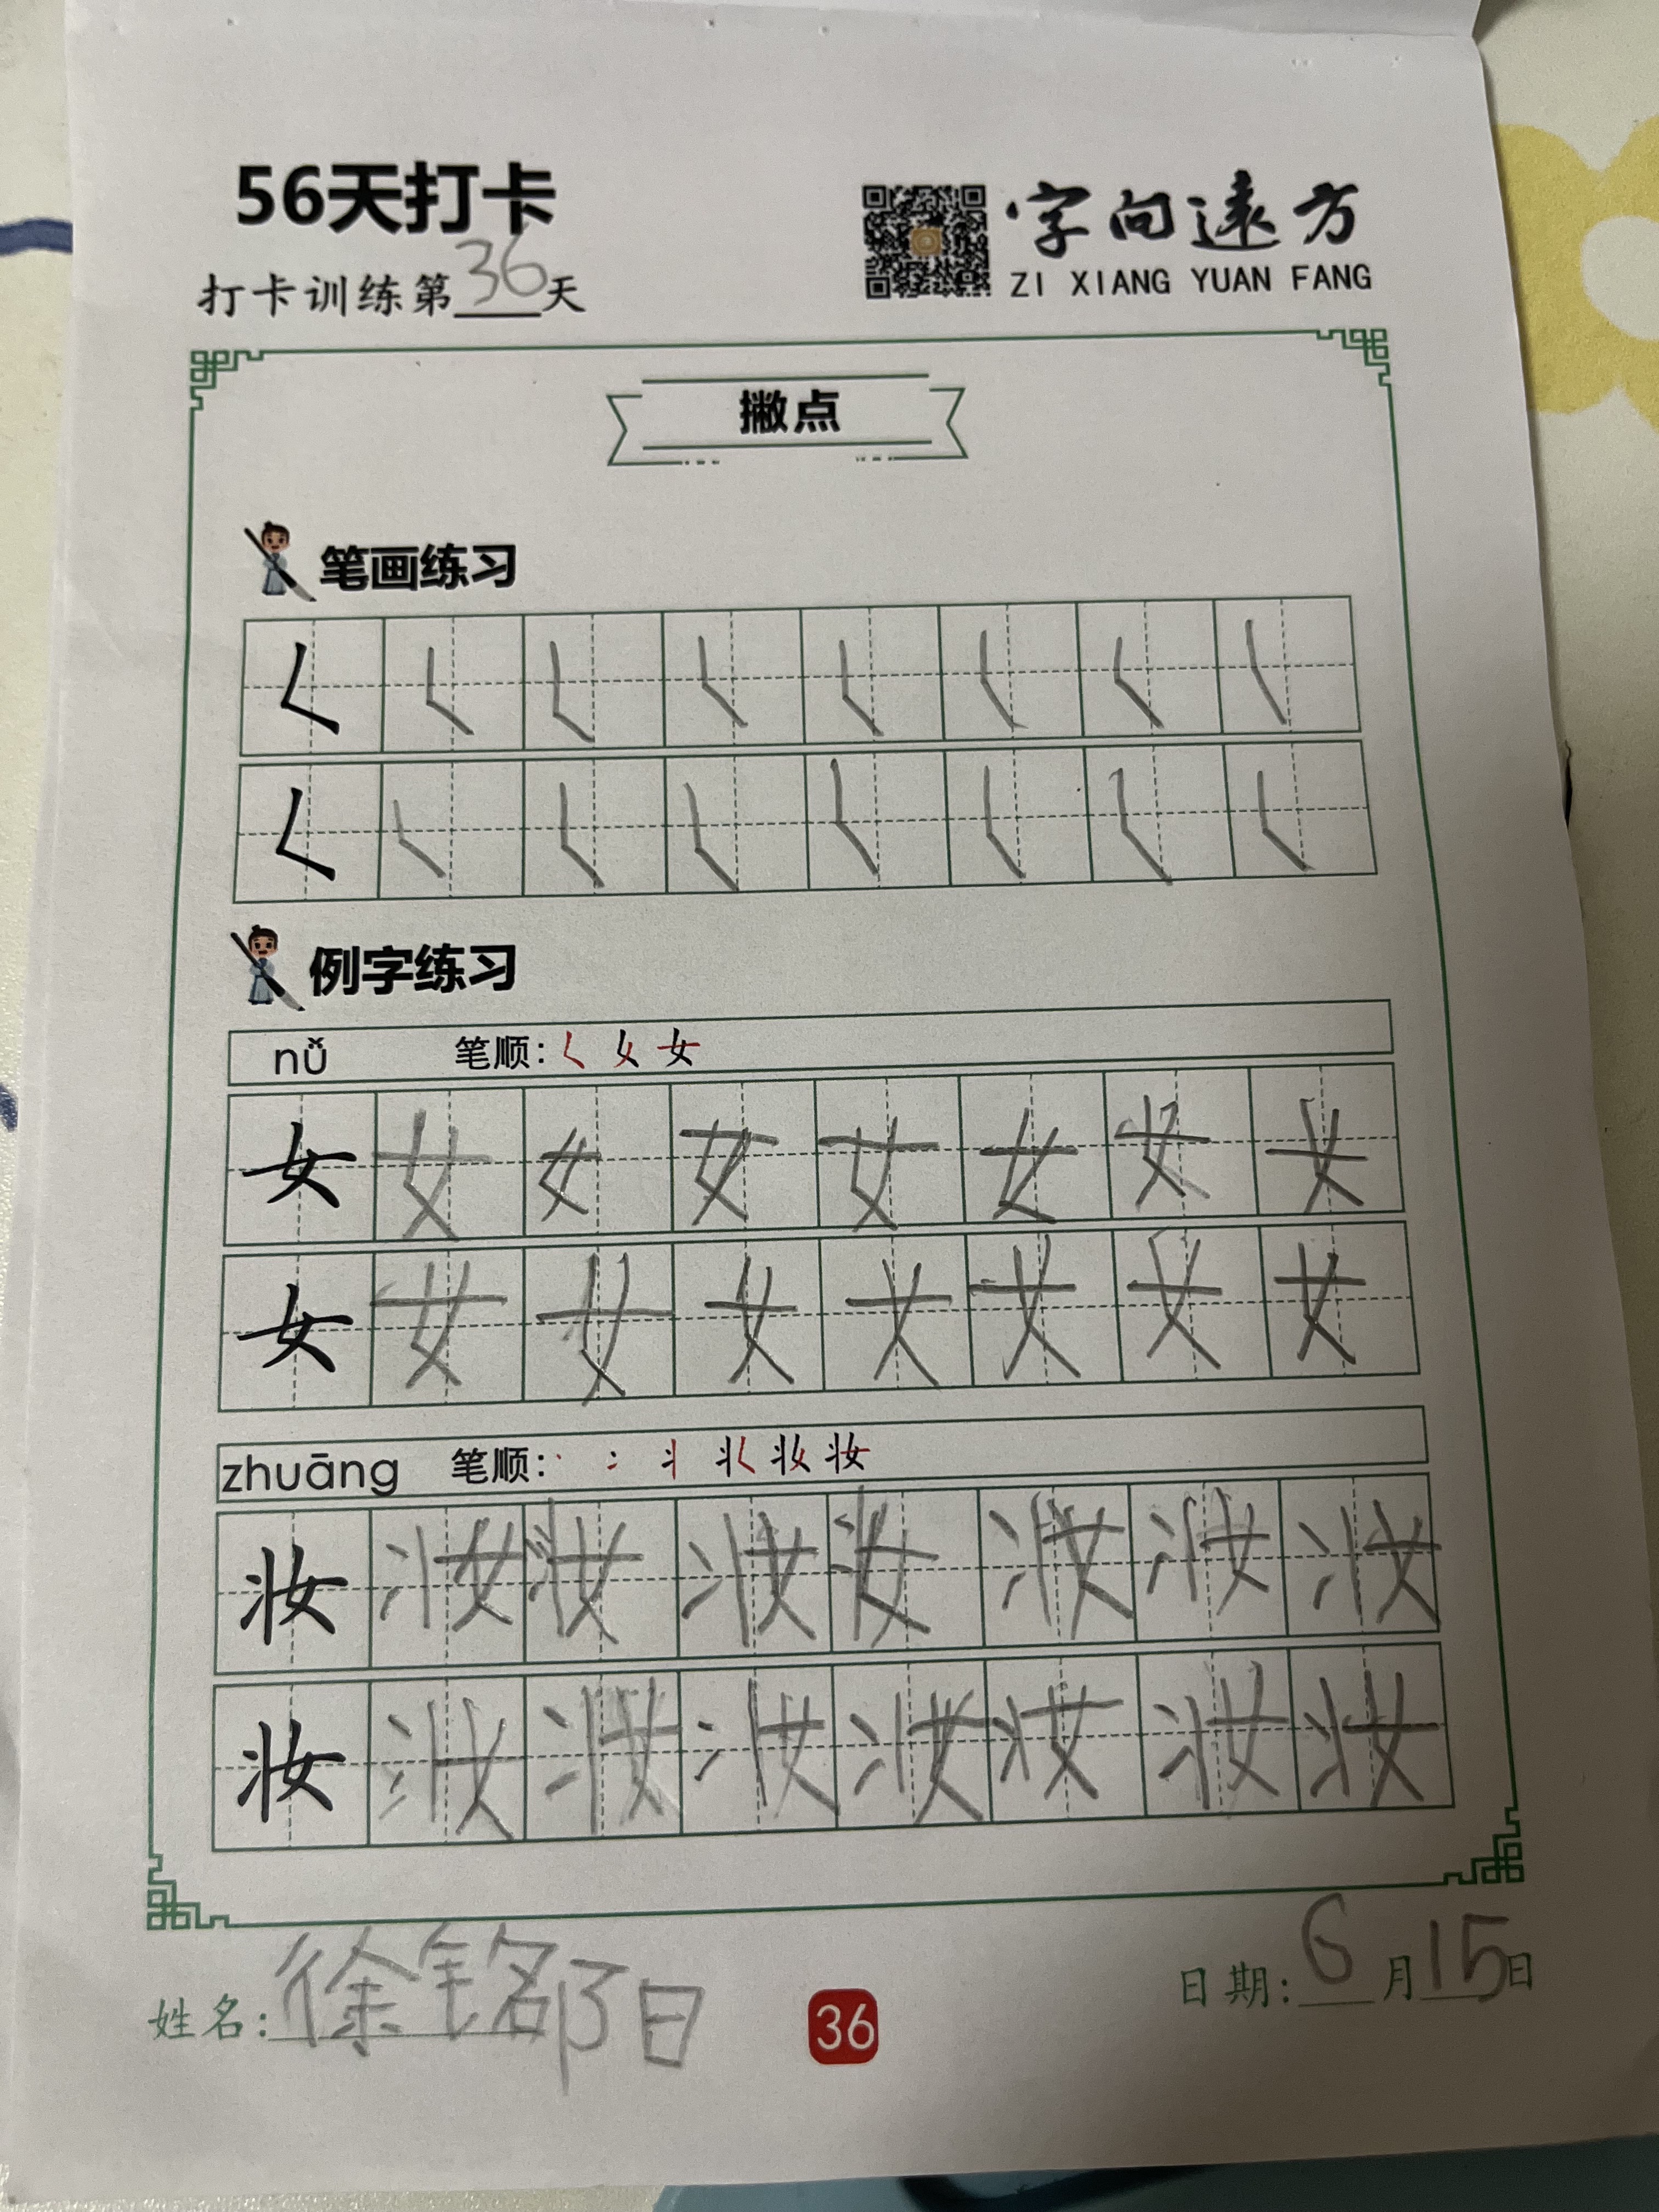 56天打卡
打卡训练第36天
字向远方
ZI XIANG YUAN FANG
撇点
笔画练习
例字练习
nǚ 笔顺: 女
女 女 女 女 女 女 女 女
女 女 女 女 女 女 女 女
zhuāng 笔顺: 妆
妆 妆 妆 妆 妆 妆 妆 妆
妆 妆 妆 妆 妆 妆 妆 妆
姓名: 徐铭阳
36
日期: 6月15日